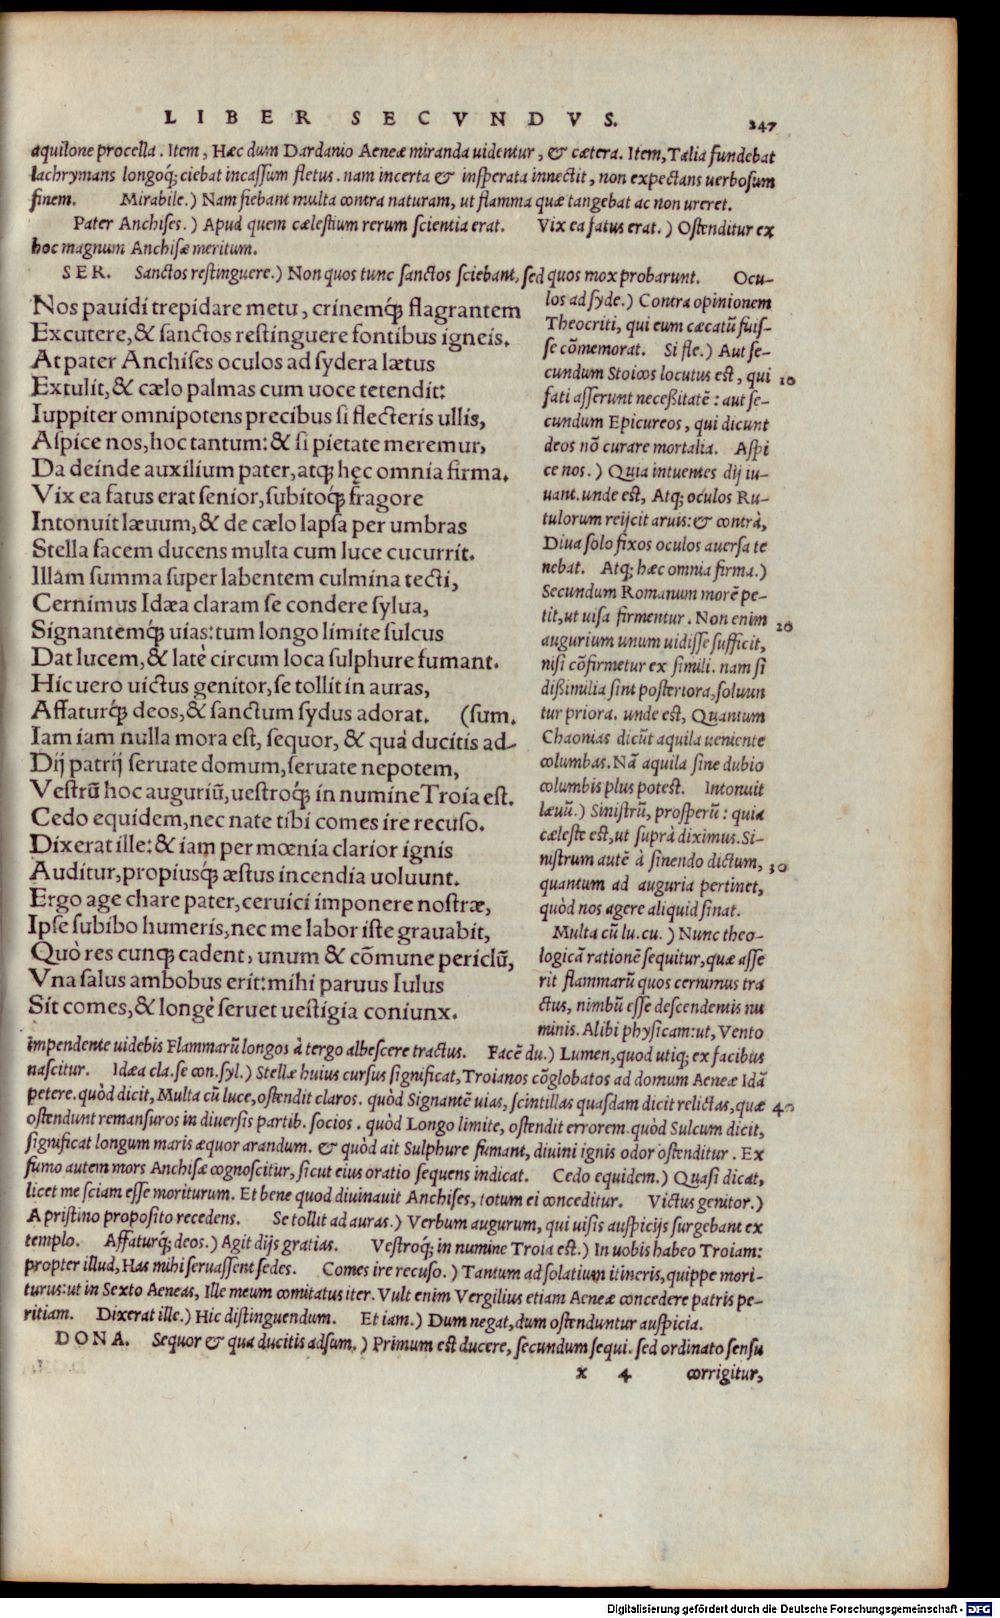 LIBER SECVNDVS. 247
aquilone procella. Item, Hæc dum Dardanio Aeneæ miranda uidentur, & cætera. Item, Talia fundebat
lachrymans longoq́; ciebat incassum fletus. nam incerta & insperata innectit, non expectans uerbosum
finem. Mirabile.) Nam fiebant multa contra naturam, ut flamma quæ tangebat ac non ureret.
Pater Anchises.) Apud quem cælestium rerum scientia erat. Vix ea fatus erat.) Ostenditur ex
hoc magnum Anchisæ meritum.
SER. Sanctos restinguere.) Non quos tunc sanctos sciebant, sed quos mox probarunt. Ocu-
Nos pauidi trepidare metu, crinemq́; flagrantem
Excutere, & sanctos restinguere fontibus igneis.
At pater Anchises oculos ad sydera lætus
Extulit, & cælo palmas cum uoce tetendit:
Iuppiter omnipotens precibus si flecteris ullis,
Aspice nos, hoc tantum: & si pietate meremur,
Da deinde auxilium pater, atq; hęc omnia firma.
Vix ea fatus erat senior, subitoq́; fragore
Intonuit læuum, & de cælo lapsa per umbras
Stella facem ducens multa cum luce cucurrit.
Illam summa super labentem culmina tecti,
Cernimus Idæa claram se condere sylua,
Signantemq́; uias: tum longo limite sulcus
Dat lucem, & latè circum loca sulphure fumant.
Hic uero uictus genitor, se tollit in auras,
Affaturq́; deos, & sanctum sydus adorat. (sum.
Iam iam nulla mora est, sequor, & quà ducitis ad-
Dij patrij seruate domum, seruate nepotem,
Vestrũ hoc auguriũ, uestroq́; in numine Troia est.
Cedo equidem, nec nate tibi comes ire recuso.
Dixerat ille: & iam per mœnia clarior ignis
Auditur, propiusq́; æstus incendia uoluunt.
Ergo age chare pater, ceruici imponere nostræ,
Ipse subibo humeris, nec me labor iste grauabit,
Quò res cunq; cadent, unum & cõmune periclũ,
Vna salus ambobus erit: mihi paruus Iulus
Sit comes, & longè seruet uestigia coniunx.
los ad syde.) Contra opinionem
Theocriti, qui eum cæcatũ fuis-
se cõmemorat. Si fle.) Aut se-
cundum Stoicos locutus est, qui 10
fati asserunt necessitatẽ: aut se-
cundum Epicureos, qui dicunt
deos nõ curare mortalia. Aspi
ce nos.) Quia intuentes dij iu-
uant. unde est, Atq; oculos Ru-
tulorum reijcit aruis: & contrà,
Diua solo fixos oculos auersa te
nebat. Atq; hæc omnia firma.)
Secundum Romanum morẽ pe-
tit, ut uisa firmentur. Non enim 20
augurium unum uidisse sufficit,
nisi cõfirmetur ex simili. nam si
dissimilia sint posteriora, soluun
tur priora. unde est, Quantum
Chaonias dicũt aquila ueniente
columbas. Nã aquila sine dubio
columbis plus potest. Intonuit
læuũ.) Sinistrũ, prosperũ: quia
cæleste est, ut suprà diximus. Si-
nistrum autẽ à sinendo dictum, 30
quantum ad auguria pertinet,
quòd nos agere aliquid sinat.
Multa cũ lu. cu.) Nunc theo-
logicã rationẽ sequitur, quæ asse
rit flammarũ quos cernimus tra
ctus, nimbũ esse descendentis nu
minis. Alibi physicam: ut, Vento
impendente uidebis Flammarũ longos à tergo albescere tractus. Facẽ du.) Lumen, quod utiq; ex facibus
nascitur. Idæa cla. se con. syl.) Stellæ huius cursus significat, Troianos cõglobatos ad domum Aeneæ Idã
petere. quòd dicit, Multa cũ luce, ostendit claros. quòd Signantẽ uias, scintillas quasdam dicit relictas, quæ 40
ostendunt remansuros in diuersis partib. socios. quòd Longo limite, ostendit errorem. quòd Sulcum dicit,
significat longum maris æquor arandum. & quòd ait Sulphure fumant, diuini ignis odor ostenditur. Ex
fumo autem mors Anchisæ cognoscitur, sicut eius oratio sequens indicat. Cedo equidem.) Quasi dicat,
licet me sciam esse moriturum. Et bene quod diuinauit Anchises, totum ei conceditur. Victus genitor.)
A pristino proposito recedens. Se tollit ad auras.) Verbum augurum, qui uisis auspicijs surgebant ex
templo. Affaturq́; deos.) Agit dijs gratias. Vestroq́; in numine Troia est.) In uobis habeo Troiam:
propter illud, Has mihi seruassent sedes. Comes ire recuso.) Tantum ad solatium itineris, quippe mori-
turus: ut in Sexto Aeneas, Ille meum comitatus iter. Vult enim Vergilius etiam Aeneæ concedere patris pe-
ritiam. Dixerat ille.) Hic distinguendum. Et iam.) Dum negat, dum ostenduntur auspicia.
DONA. Sequor & qua ducitis adsum.) Primum est ducere, secundum sequi. sed ordinato sensu
x 4 corrigitur,
Digitalisierung gefördert durch die Deutsche Forschungsgemeinschaft - DFG